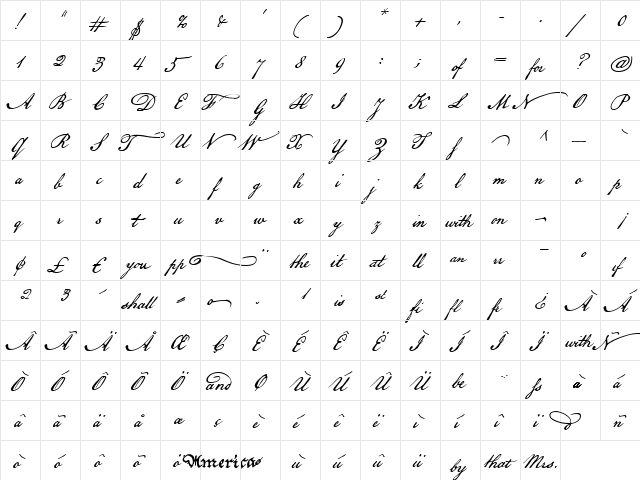 ! " # $ % & ' ( ) * + , - . / 0
1 2 3 4 5 6 7 8 9 : ; of = for ? @
A B C D E F G H I J K L M N O P
Q R S T U V W X Y Z T f ^ — `
a b c d e f g h i j k l m n o p
q r s t u v w x y z in with on ¬ ¡
¢ £ € you pp ¨ the it at ll an rr ¯ ° if
2 3 ´ shall = . 1 is st fi fl fr ¿ À Á
Â Ã Ä Å Æ Ç È É Ê Ë Ì Í Î Ï with Ñ
Ò Ó Ô Õ Ö and Ø Ù Ú Û Ü be ¨ fs à á
â ã ä å æ ç è é ê ë ì í î ï ñ
ò ó ô õ ö America ù ú û ü by that Mrs.